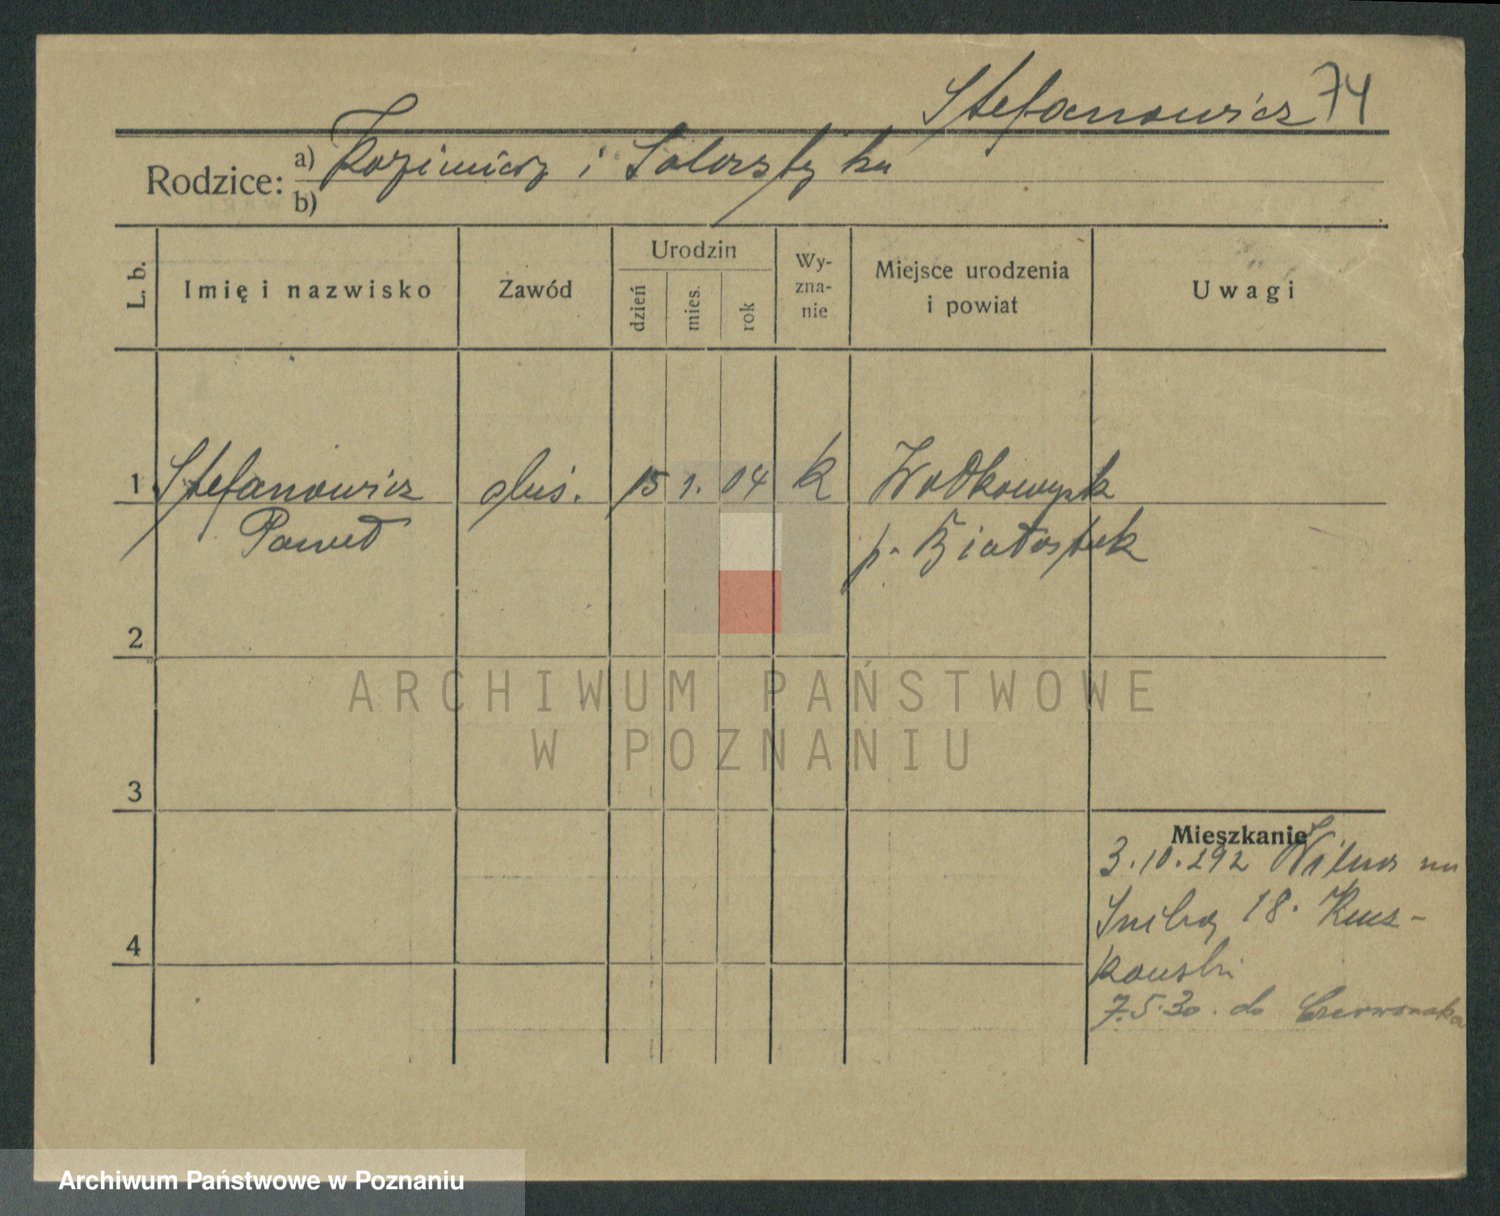 Stefanowicz 74
Rodzice: a) Kazimierz i
b)
L. b. Imię i nazwisko Zawód Urodzin dzień mies. rok Wy-zna-nie Miejsce urodzenia i powiat Uwagi
1 Stefanowicz ślus. 15 1. 04 k Wołkowysk
Paweł p. Białostok
2
ARCHIWUM PAŃSTWOWE
W POZNANIU
3
Mieszkanie
3.10.292 Wilno
18.
4
7.5.30. do Czerwonaka
Archiwum Państwowe w Poznaniu